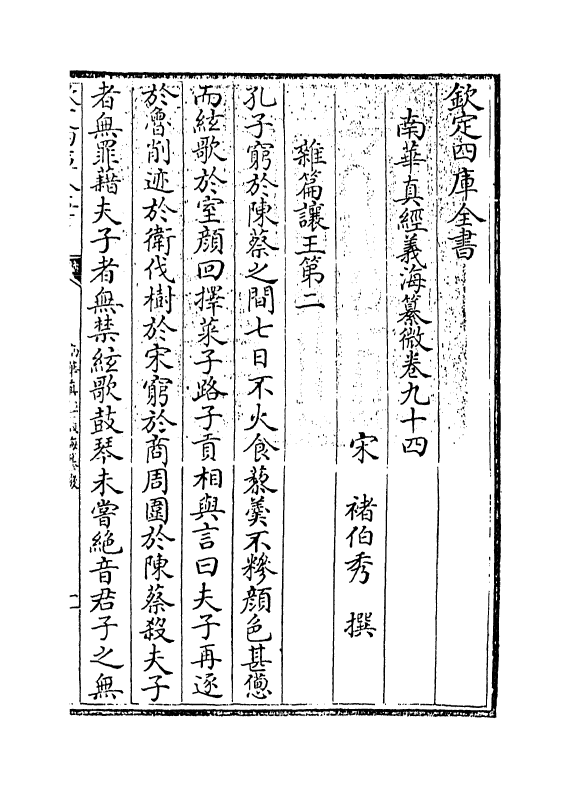 欽定四庫全書
南華真經義海纂微卷九十四
宋　褚伯秀　撰
雜篇讓王第二
孔子窮於陳蔡之間七日不火食藜羮不糝顔色甚憊
而絃歌於室顔回擇菜子路子貢相與言曰夫子再逐
於魯削迹於衛伐樹於宋窮於商周圍於陳蔡殺夫子
者無罪藉夫子者無禁絃歌鼓琴未嘗絶音君子之無